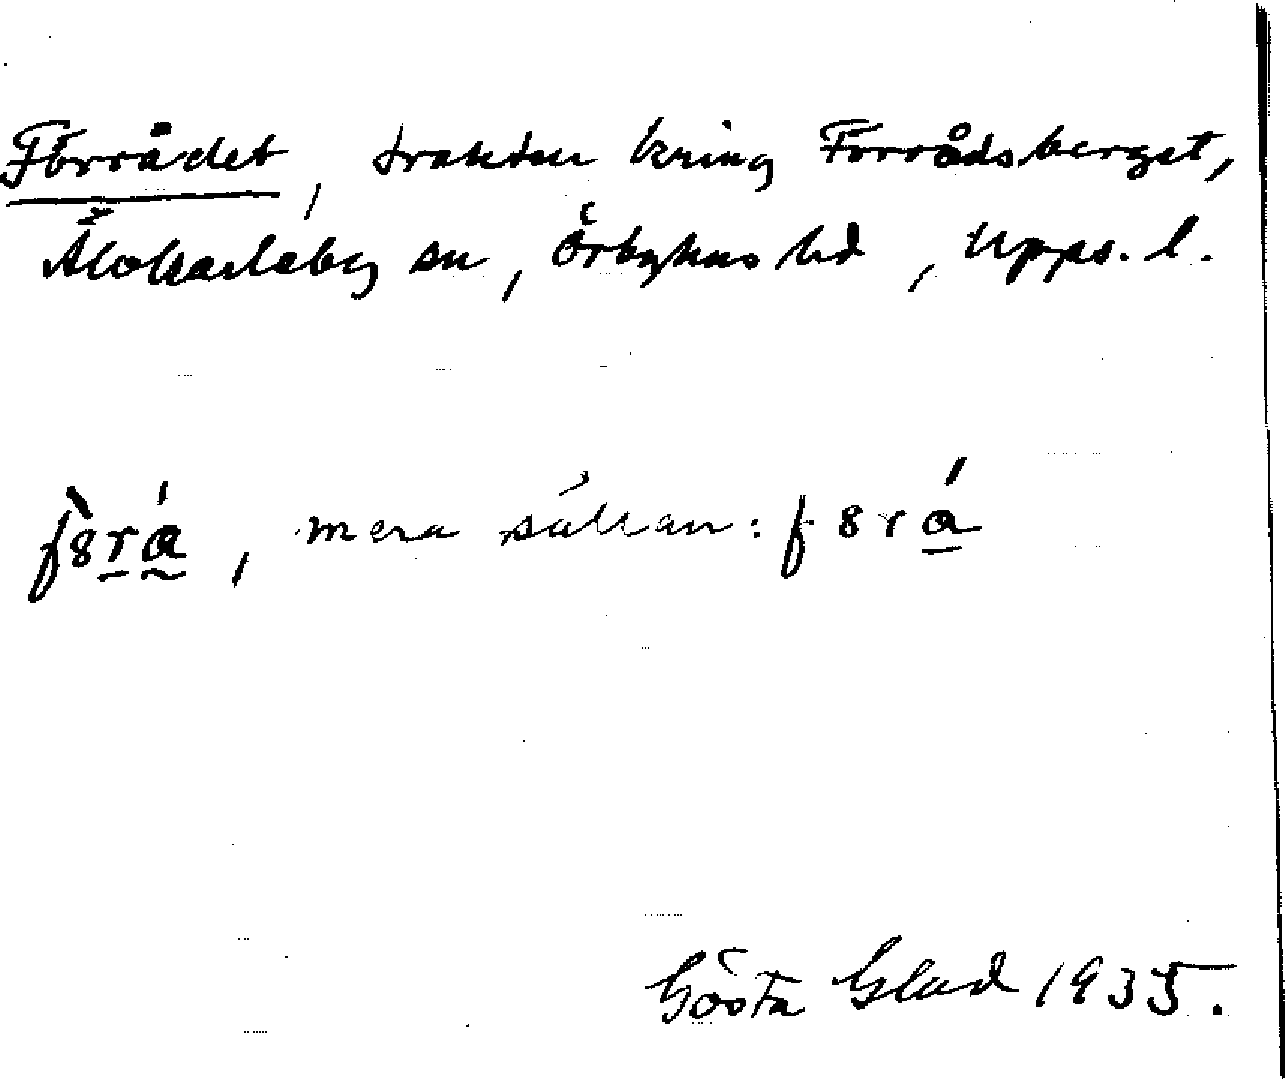 Förrådet, trakten kring Förrådsberget,
Älvkarleby sn, Örbyhus hd, Upps. l.
f8̀rá, mera sällan: f8rá
Gösta Glad 1935.